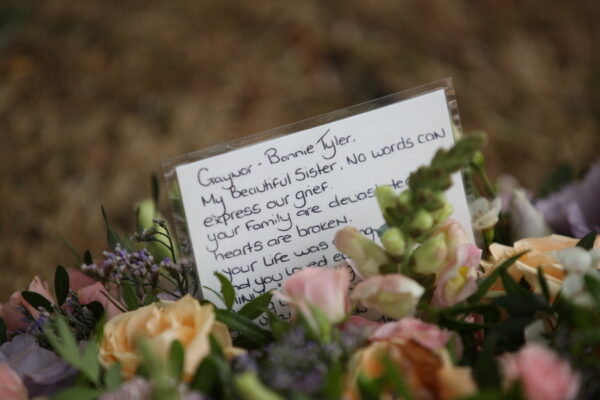 Gaynor - Bonnie Tyler.
My beautiful Sister, No words can
express our grief.
your Family are devast
hearts are broken.
your Life was
And you Loved e